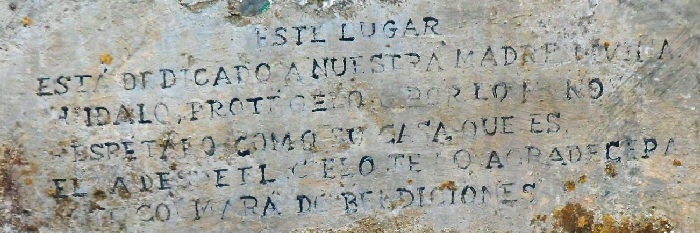 ESTE LUGAR
ESTÁ DEDICADO A NUESTRA MADRE DIVINA
CUIDALO, PROTÉGELO POR LO
RESPETALO COMO SU CASA, QUE ES.
EL DESDE EL CIELO TE LO AGRADECERA
COLMARÁ DE BENDICIONES